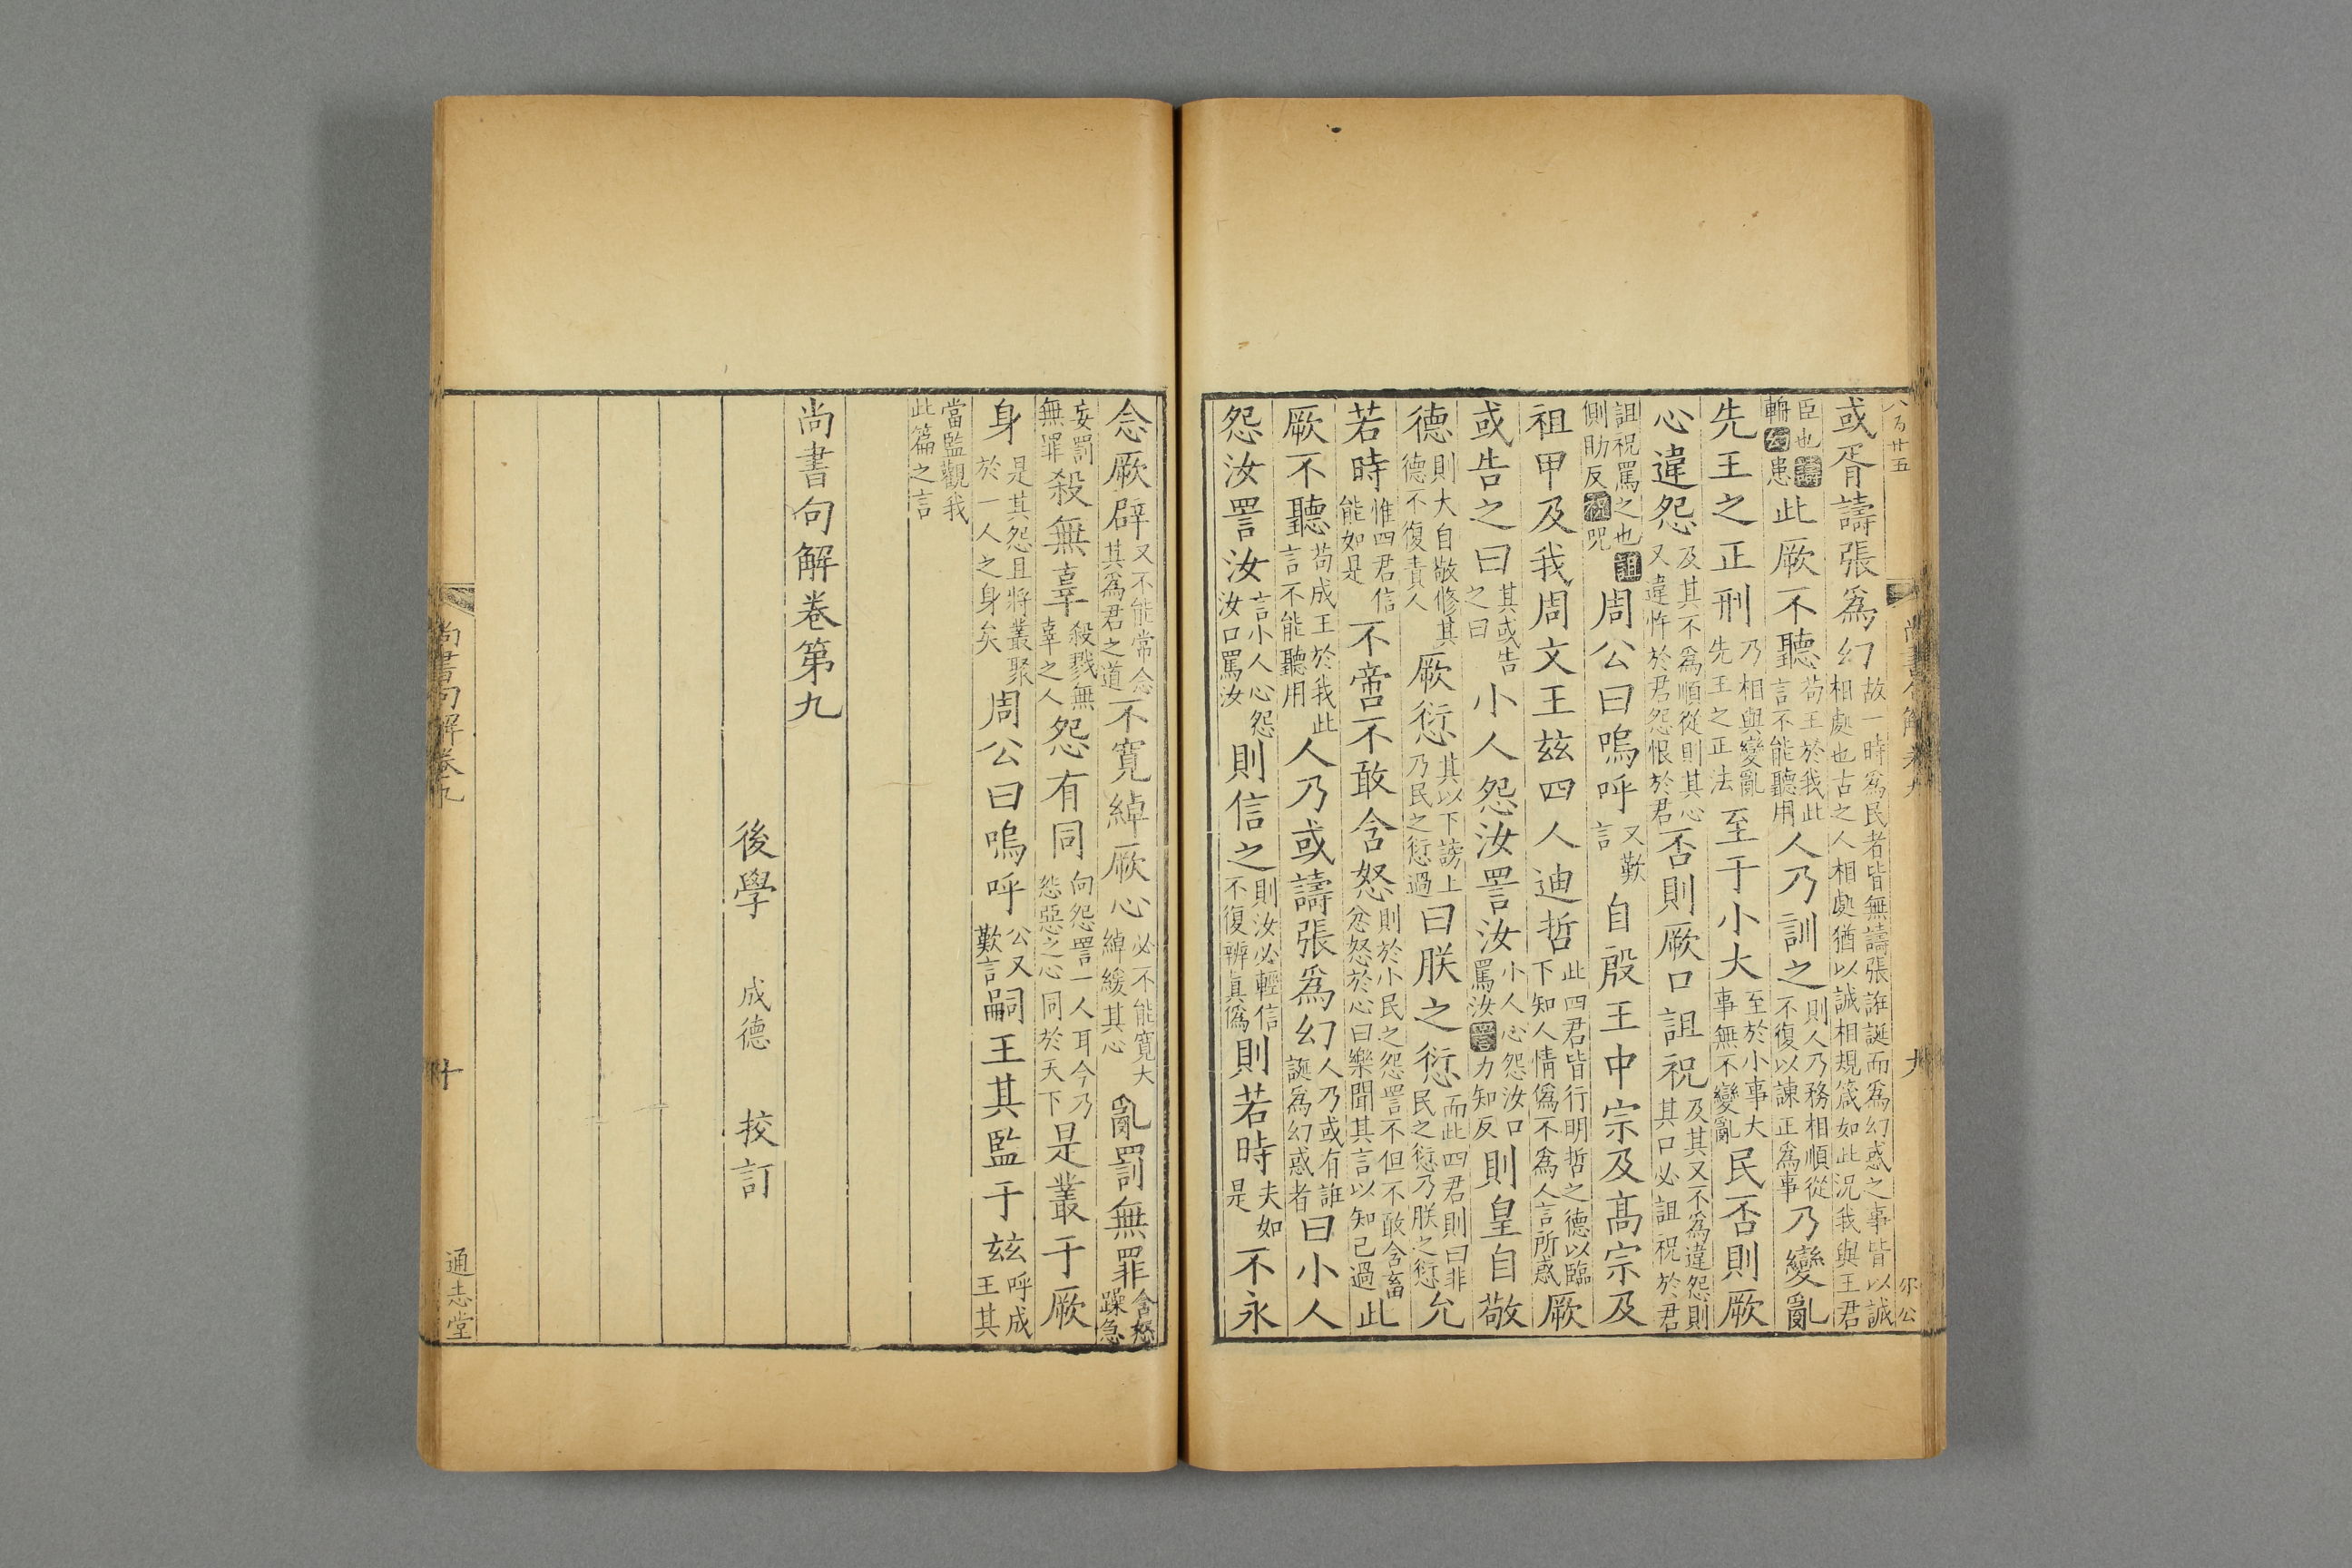 八百廿五
尚書句解卷九
九
尔公
或胥譸張爲幻故一時爲民者皆無譸張誑誕而爲幻惑之事皆以誠相處也古之人相處猶以誠相規箴如此況我與王君
臣也譸輈幻患此厥不聽苟王於我此言不能聽用人乃訓之則人乃務相順從不復以諫正爲事乃變亂
先王之正刑乃相與變亂先王之正法至于小大至於小事大事無不變亂民否則厥
心違怨及其不爲順從則其心又違忤於君怨恨於君否則厥口詛祝及其又不爲違怨則其口必詛祝於君
詛祝罵之也詛側助反祝咒周公曰嗚呼又歎言自殷王中宗及高宗及
祖甲及我周文王兹四人迪哲此四君皆行明哲之德以臨下知人情僞不爲人言所惑厥
或告之曰其或告之曰小人怨汝詈汝小人心怨汝口罵汝詈力知反則皇自敬
德則大自敬修其德不復責人厥愆其以下謗上乃民之愆過曰朕之愆而此四君則曰非民之愆乃朕之愆允
若時惟四君信能如是不啻不敢含怒則於小民之怨詈不但不敢含畜忿怒於心曰樂聞其言以知己過此
厥不聽苟成王於我此言不能聽用人乃或譸張爲幻人乃或有誑誕爲幻惑者曰小人
怨汝詈汝言小人心怨汝口罵汝則信之則汝必輕信不復辨真僞則若時夫如是不永
念厥辟又不能常念其爲君之道不寬綽厥心必不能寬大綽緩其心亂罰無罪含怒躁急
妄罰無罪殺無辜殺戮無辜之人怨有同向怨詈一人耳今乃怨惡之心同於天下是叢于厥
身是其怨且將叢聚於一人之身矣周公曰嗚呼公又歎言嗣王其監于兹呼成王其
當監觀我此篇之言
尚書句解卷第九
後學 成德 校訂
尚書句解卷九
十
通志堂